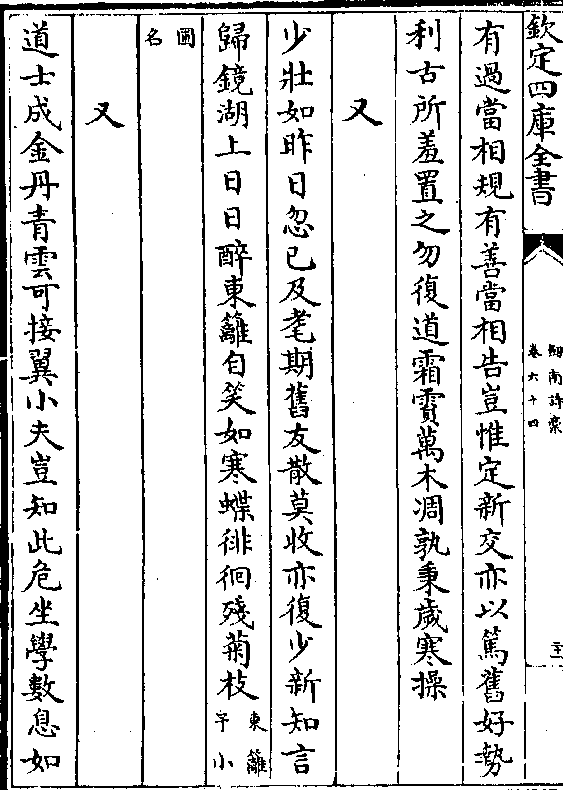 欽定四庫全書
劍南詩槀
卷六十四
有過當相規有善當相告豈惟定新交亦以篤舊好勢
利古所羞置之勿復道霜霣萬木凋孰秉歲寒操
又
少壯如昨日忽已及耄期舊友散莫收亦復少新知言
歸鏡湖上日日醉東籬自笑如寒蝶徘徊殘菊枝東籬
予小
圃
名
又
道士成金丹青雲可接翼小夫豈知此危坐學數息如